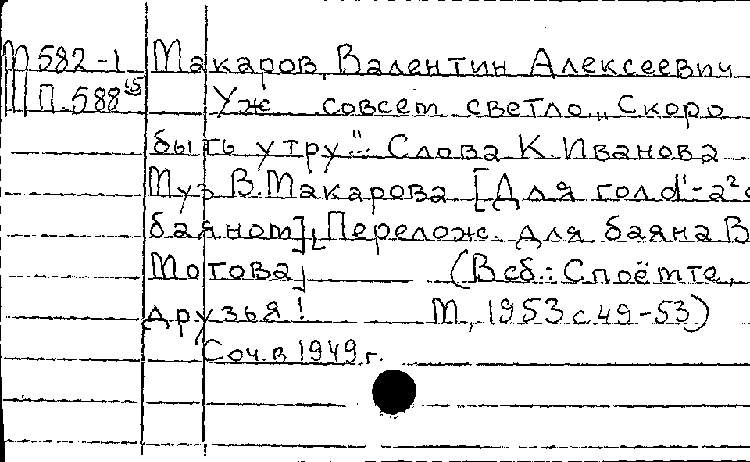 М 582-1 Макаров, Валентин Алексеевич
П.588 45 Уж совсем светло „Скоро
быть утру"... Слова К. Иванова
Муз В. Макарова [Для гол d'-a² с
баяном], [Перелож. для баяна В
Мотова] (В сб.: Споёмте,
друзья! М, 1953 с. 49-53)
Соч. в 1949 г.